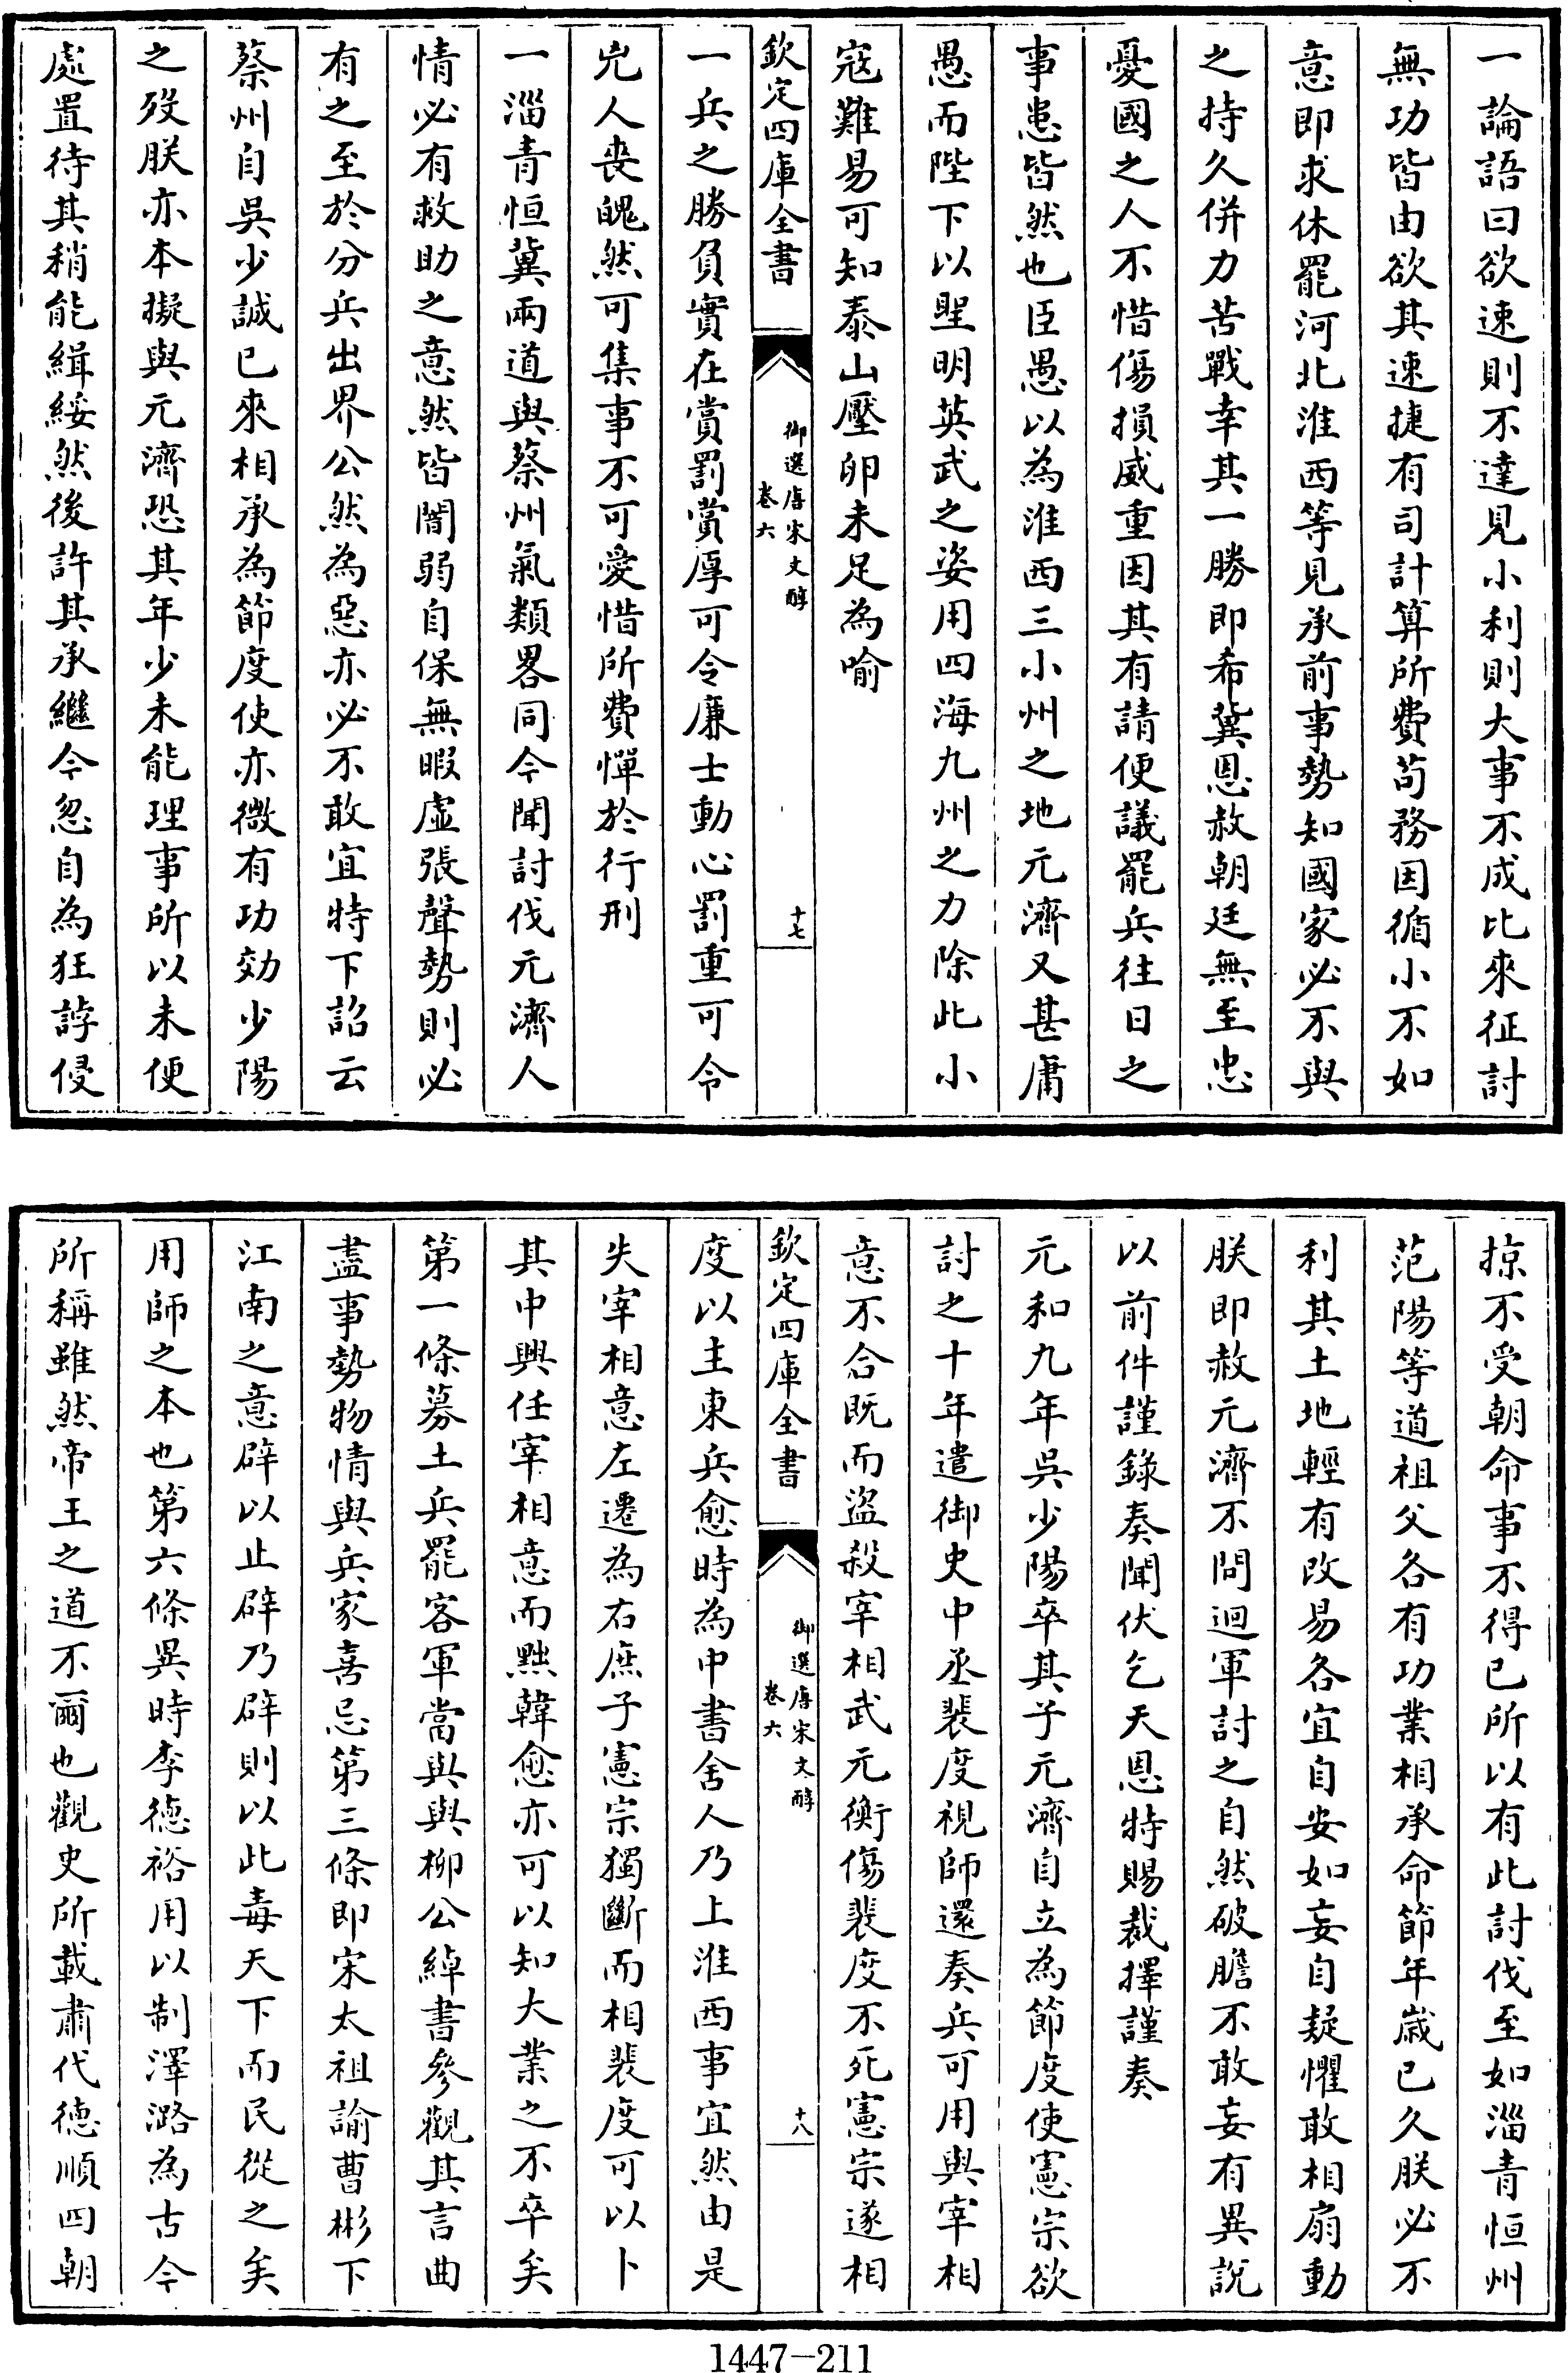 一論語曰欲速則不達見小利則大事不成比來征討
無功皆由欲其速捷有司計算所費苟務因循小不如
意即求休罷河北淮西等見承前事勢知國家必不與
之持久併力苦戰幸其一勝即希冀恩赦朝廷無至忠
憂國之人不惜傷損威重因其有請便議罷兵往日之
事患皆然也臣愚以為淮西三小州之地元濟又甚庸
愚而陛下以聖明英武之姿用四海九州之力除此小
寇難易可知泰山壓卵未足為喻
欽定四庫全書
御選唐宋文醇
卷六
十七
一兵之勝負實在賞罰賞厚可令廉士動心罰重可令
兇人喪魄然可集事不可愛惜所費憚於行刑
一淄青恒冀兩道與蔡州氣類畧同今聞討伐元濟人
情必有救助之意然皆闇弱自保無暇虛張聲勢則必
有之至於分兵出界公然為惡亦必不敢宜特下詔云
蔡州自吳少誠已來相承為節度使亦微有功効少陽
之歿朕亦本擬與元濟恐其年少未能理事所以未便
處置待其稍能緝綏然後許其承繼今忽自為狂誖侵
掠不受朝命事不得已所以有此討伐至如淄青恒州
范陽等道祖父各有功業相承命節年歲已久朕必不
利其土地輕有改易各宜自安如妄自疑懼敢相扇動
朕即赦元濟不問迴軍討之自然破膽不敢妄有異說
以前件謹錄奏聞伏乞天恩特賜裁擇謹奏
元和九年吳少陽卒其子元濟自立為節度使憲宗欲
討之十年遣御史中丞裴度視師還奏兵可用與宰相
意不合既而盜殺宰相武元衡傷裴度不死憲宗遂相
欽定四庫全書
御選唐宋文醇
卷六
十八
度以主東兵愈時為中書舍人乃上淮西事宜然由是
失宰相意左遷為右庶子憲宗獨斷而相裴度可以卜
其中興任宰相意而黜韓愈亦可以知大業之不卒矣
第一條募土兵罷客軍當與與柳公綽書參觀其言曲
盡事勢物情與兵家喜忌第三條即宋太祖諭曹彬下
江南之意辟以止辟乃辟則以此毒天下而民從之矣
用師之本也第六條異時李德裕用以制澤潞為古今
所稱雖然帝王之道不爾也觀史所載肅代德順四朝
1447-211